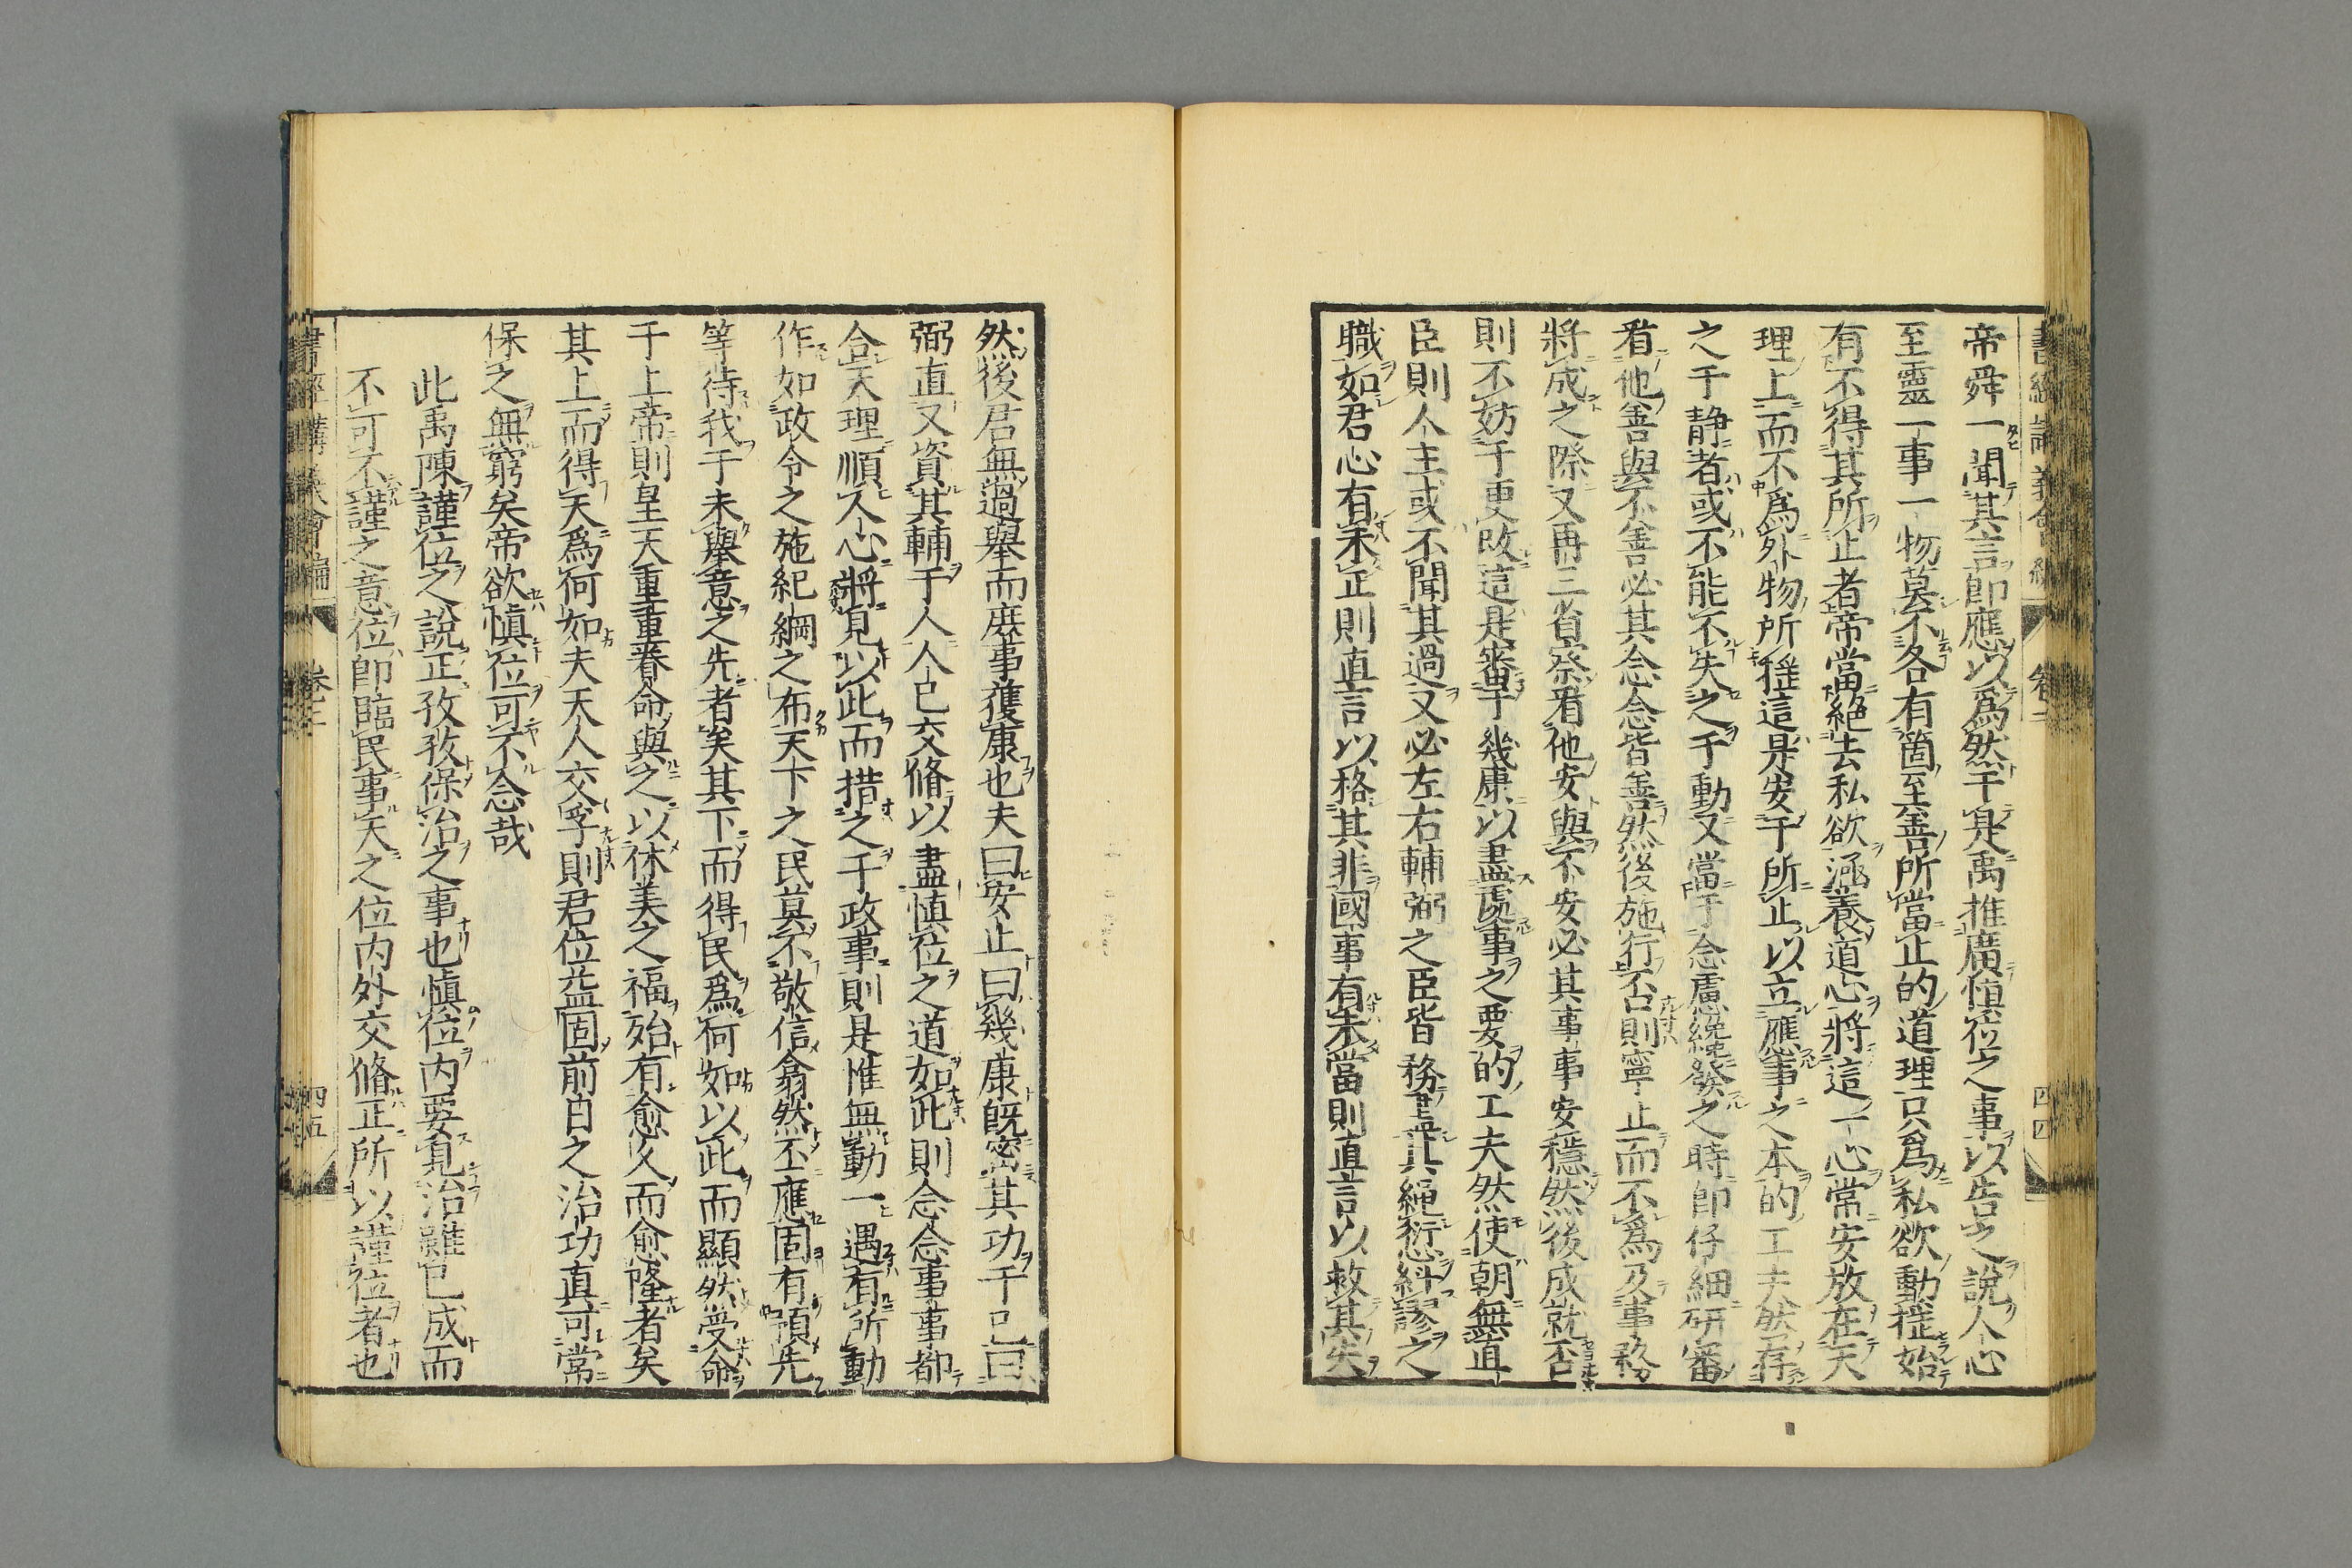 帝舜一聞其言即應以爲然于是禹推廣愼位之事以告之說人心
至靈一事一物莫不各有箇至善所當止的道理只爲私欲動搖始
有不得其所止者帝當絕去私欲涵養道心將這一心常安放在天
理上而不爲外物所搖這是安于所止以立應事之本的工夫然存
之于静者或不能不失之于動又當于念慮纔發之時即仔細研審
看他善與不善必其念念皆善然後施行否則寧止而不爲及事務
將成之際又再三省察看他安與不安必其事事安穩然後成就否
則不妨于更改這是審于幾康以盡處事之要的工夫然使朝無直
臣則人主或不聞其過又必左右輔弼之臣皆務盡其繩愆糾謬之
職如君心有未正則直言以格其非國事有未當則直言以救其失
然後君無過舉而庶事獲康也夫曰安止曰幾康旣密其功于己曰
弼直又資其輔于人人己交脩以盡愼位之道如此則念念事事都
合天理順人心將見以此而措之于政事則是惟無動一遇有所動
作如政令之施紀綱之布天下之民莫不敬信翕然丕應固有預先
等待我于未舉意之先者矣其下而得民爲何如以此而顯然受命
于上帝則皇天重重眷命與之以休美之福殆有愈久而愈隆者矣
其上而得天爲何如夫天人交孚則君位益固前日之治功真可常
保之無窮矣帝欲愼位可不念哉
此禹陳謹位之說正孜孜保治之事也愼位内要見治雖已成而
不可不謹之意位即臨民事天之位内外交脩正所以謹位者也
書經講義會編
卷二
四四
書經講義會編
卷二
四五